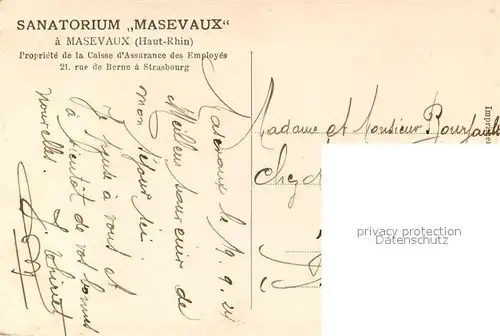 SANATORIUM „MASEVAUX“
à MASEVAUX (Haut-Rhin)
Propriété de la Caisse d'Assurance des Employés
21, rue de Berne à Strasbourg
Masevaux le 19.9.
Meilleur souvenir de
mon séjour ici.
Je pense à vous et
à bientôt de vos bonnes
nouvelles.
Madame et Monsieur
Chez
privacy protection
Datenschutz